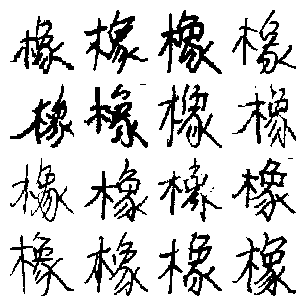 橡橡橡橡
橡橡橡橡
橡橡橡橡
橡橡橡橡